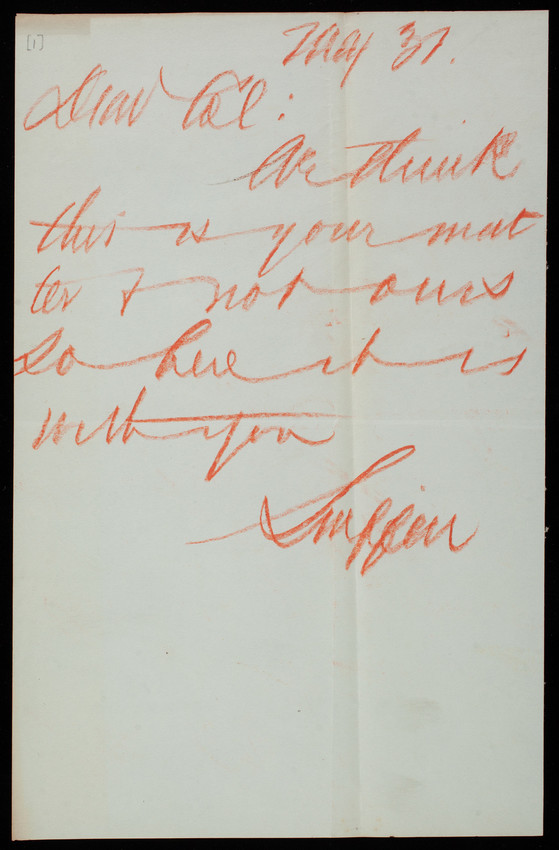 [1]
May 31.
Dear Col:
We think
this is your mat
ter & not ours
So here it is
with you